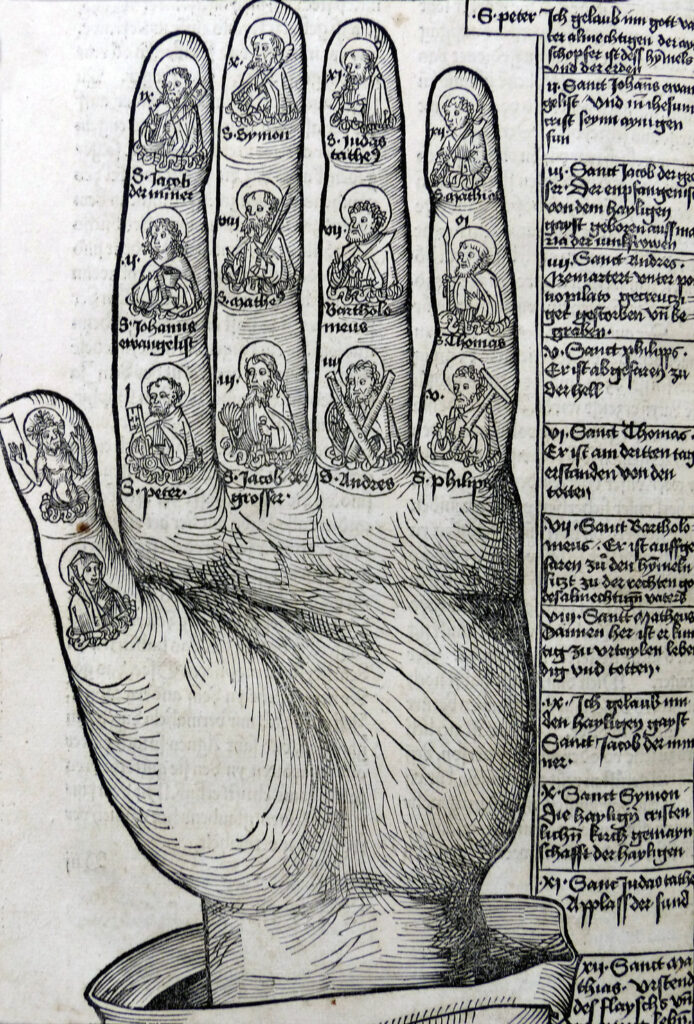 ix
S. Jacob
der minner
x
S. Symon
xi
S. Judas
tatheus
xii
S. mathias
ii
S. Johannis
ewangelist
viii
S. Matheus
vii
Bartholo
meus
vi
S. Thomas
i
S. peter
iii
S. Jacob der
grosser
iiii
S. Andres
v
S. Philipp
S. peter
Ich gelaub inn gott va
ter almechtigen der ayn
schopfer ist des hymels
vnd der erden
ii Sanct Johanns ewan
gelist Vnd in ihesum
crist seynn aynigen
sun
iii Sanct Jacob der gro
ser. Der enpfangen ist
von dem hayligen
gayst geboren auss ma
ria der iunkfrowen
iiii Sanct Andres.
Gemartert vnter po
no pilato getreucz
get gestorben vnd be
graben.
v Sanct philipps
Er ist abgefaren zu
der hell
vi Sanct Thomas
Er ist am dritten tag
erstanden von den
totten
vii Sanct Bartholo
meus. Er ist auffge
faren zu den hymeln
sitzt zu der rechten go
des almechtign vaters
viii Sanct Matheus
Dannen her ist er kun
tig zu vrteylen lebe
dig vnd totten.
ix Ich gelaub inn
den hayligen gayst
Sanct Jacob der min
ner.
x Sanct Symon
Die haylign cristen
lichn kirch gemayn
schafft der hayligen
xi Sanct Judas tathe
Applass der sund
xii Sanct Ma
thias. Vrstend
des flayschs vn